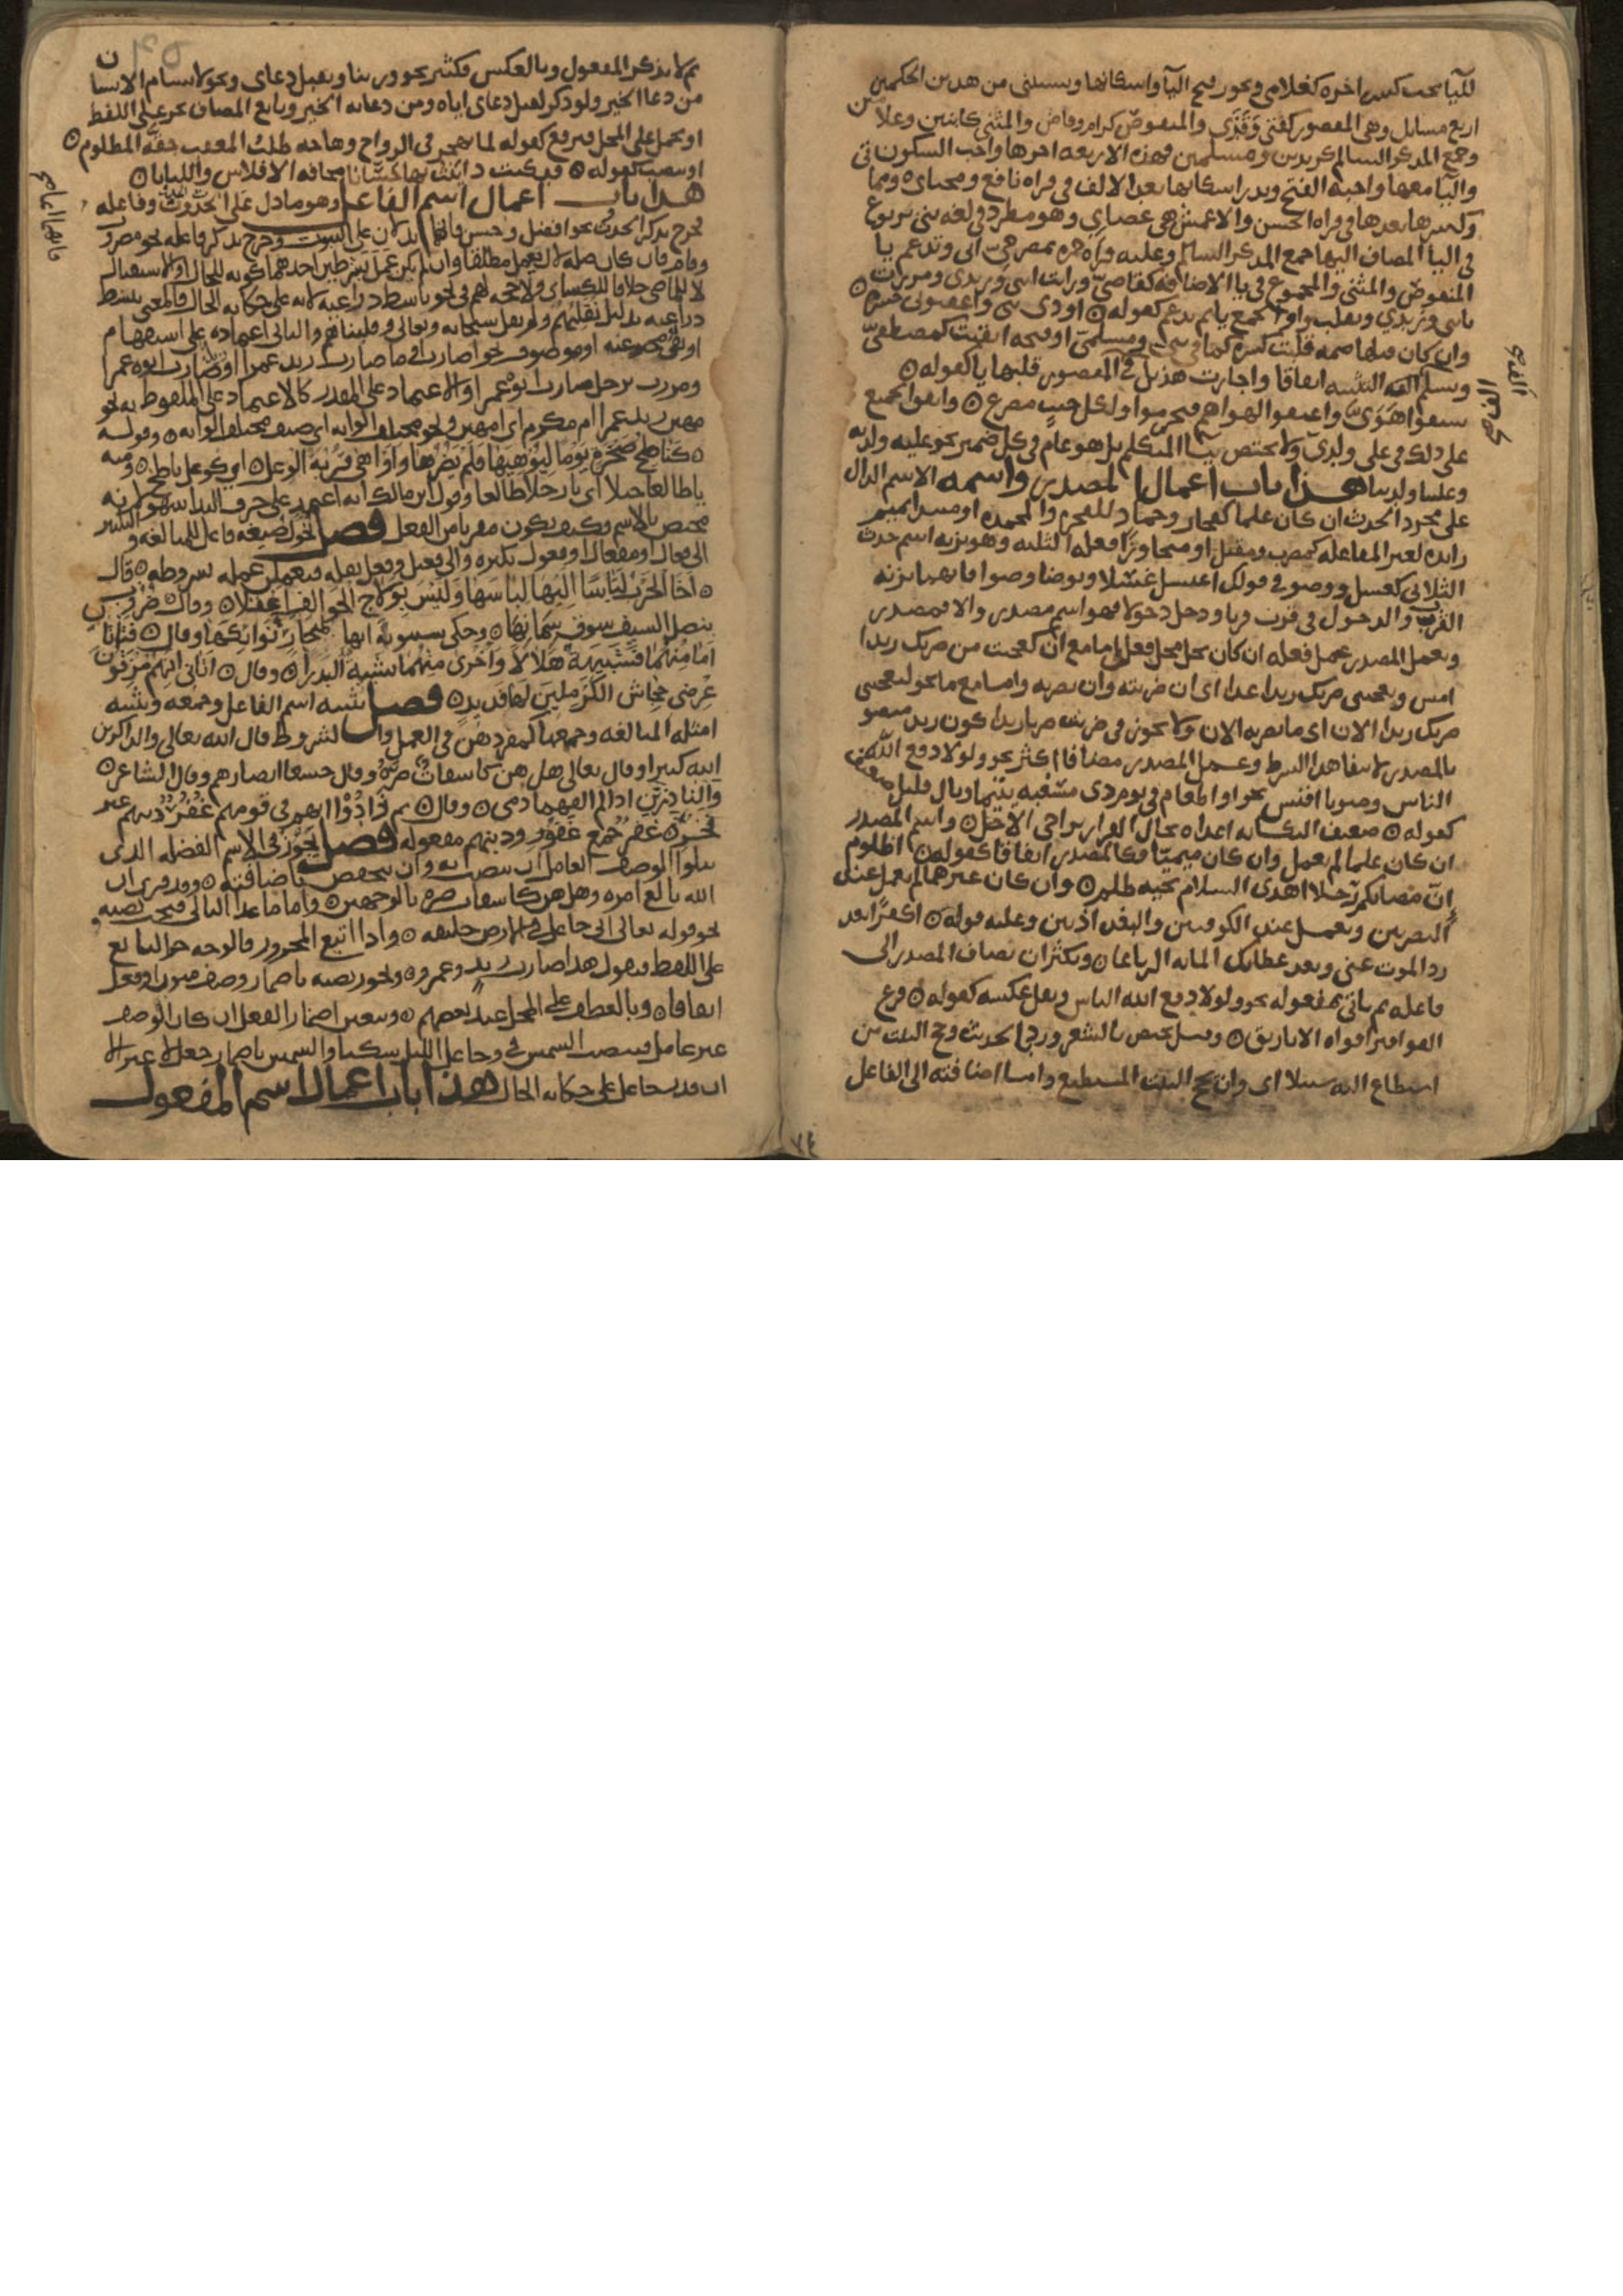 لليا يجب كسر اخره كغلامي ويجوز فتح اليا واسكانها ويستثنى من هذين الحكمين
اربع مسايل وهي المقصور كفتى وقذى والمنقوص كرام وقاض والمثنى كابنين وغلامين
وجمع المذكر السالم كزيدين ومسلمين فهذه الاربعة اخرها واجب السكون
واليا معها واجبة الفتح وندر اسكانها بعد الالف في قراه نافع ومحياي ومما
وكسرها بعدها في قراه الحسن والاعمش هي عصاي وهو مطرد في لغه بني يربوع
في اليا المضاف اليها جمع المذكر السالم وعليه قراه حمزه بمصرخي اي وتدغم يا
المنقوص والمثنى والمجموع في يا الاضافه كقاضي ورايت ابني وزيدي ومررت
بابني وزيدي وتقلب واو الجمع يا ثم تدغم كقوله اودى بني واعقبوني حسرة
وان كان قبلها ضمه قلبت كسره كما في بني ومسلمي او فتحه ابقيت كمصطفي
وتسلم الف التثنيه اتفاقا واجازت هذيل في المقصور قلبها يا كقوله
سبقوا هوي واعنقوا لهواهم فتخرموا ولكل جنب مصرع واتفق الجميع
على ذلك في علي ولدي ولا يختص بيا المتكلم بل هو عام في كل ضمير نحو عليه ولديه
وعلينا ولدينا هذا باب اعمال المصدر واسمه الاسم الدال
على مجرد الحدث ان كان علما كفجار وحماد للفجره والمحمده او مبدوا بميم
زايده لغير المفاعله كمضرب ومقتل او متجاوزا فعله الثلثه وهو بزنه اسم حدث
الثلاثي كغسل ووضو في قولك اغتسل غسلا وتوضا وضوا فانهما بزنه
القرب والدخول في قرب قربا ودخل دخولا فهو اسم مصدر والا فمصدر
ويعمل المصدر عمل فعله ان كان يحل محله فعل اما مع ان كعجبت من ضربك زيدا
امس ويعجبني ضربك زيدا غدا اي ان ضربته وان تضربه واما مع ما نحو يعجبني
ضربك زيدا الان اي ما تضربه الان ولا يجوز في ضربت ضربا زيدا كون زيد منصوبا
بالمصدر لانتفا هذا الشرط وعمل المصدر مضافا اكثر نحو ولولا دفع الله
الناس ومنونا اقيس نحو او اطعام في يوم ذي مسغبه يتيما وبال قليل ضعيف
كقوله ضعيف النكايه اعداه يخال الفرار يراخي الاجل واسم المصدر
ان كان علما لم يعمل وان كان ميميا فكالمصدر اتفاقا كقوله اظلوم
ان مصابكم رجلا اهدى السلام تحيه ظلم وان كان غيرهما لم يعمل عند
البصريين ويعمل عند الكوفيين والبغداذيين وعليه قوله اكفرا بعد
رد الموت عني وبعد عطايك المايه الرتاعا ويكثر ان يضاف المصدر الى
فاعله ثم ياتي مفعوله نحو ولولا دفع الله الناس ويقل عكسه كقوله قرع
القواقيز افواه الاباريق وقيل يختص بالشعر ورد بالحديث وحج البيت من
استطاع اليه سبيلا اي وان يحج البيت المستطيع واما اضافته الى الفاعل
ثم لا يذكر المفعول وبالعكس فكثير نحو وربنا وتقبل دعاي ونحو لا يسام الانسان
من دعا الخير ولو ذكر لقيل دعاي اياه ومن دعايه الخير وتابع المضاف يجر على اللفظ
او يحمل على المحل فيرفع كقوله لما تهجر في الرواح وهاجه طلب المعقب حقه المظلوم
او ينصب كقوله قد كنت داينت بها حسانا مخافه الافلاس والليانا
هذا باب اعمال اسم الفاعل وهو ما دل على الحدث والحدوث وفاعله
فخرج بذكر الحدوث نحو افضل وحسن فانهما يدلان على الثبوت وخرج بذكر فاعله نحو مضروب
وقام فان كان صله لال عمل مطلقا وان لم يكن عمل بشرطين احدهما كونه للحال او الاستقبال
لا للماضي خلافا للكساي ولا حجه لهم في نحو باسط ذراعيه لانه على حكايه الحال والمعنى يبسط
ذراعيه بدليل ونقلبهم ولم يقل سبحانه وتعالى وقلبناهم والثاني اعتماده على استفهام
او نفي او مخبر عنه او موصوف نحو اضارب زيد عمرا وما ضارب زيد عمرا وزيد ضارب ابوه عمرا
ومررت برجل ضارب ابوه عمرا والاعتماد على المقدر كالاعتماد على الملفوظ به نحو
مهين زيد عمرا ام مكرم اي امهين ونحو مختلف الوانه اي صنف مختلف الوانه وقوله
كناطح صخره يوما ليوهيها فلم يضرها واوهى قرنه الوعل اي كوعل ناطح ومنه
يا طالعا جبلا اي يا رجلا طالعا وقول ابن مالك انه اعتمد على حرف الندا سهو لانه
مختص بالاسم وكيف يكون مقربا من الفعل فصل تحول صيغه فاعل للمبالغه والتكثير
الى فعال او مفعال او فعول بكثره والى فعيل وفعل بقله فيعمل عمله بشروطه قال
اخا الحرب لباسا اليها جلالها وليس بولاج الخوالف اعقلا وقال ضروب
بنصل السيف سوق سمانها وحكى سيبويه انها لمنحار بوايكها وقال فتاتان
اما منهما فشبيهه هلالا واخرى منهما تشبه البدرا وقال اتاني انهم مزقون
عرضي جحاش الكرملين لها فديد فصل تثنيه اسم الفاعل وجمعه وتثنيه
امثله المبالغه وجمعها كمفردهن في العمل والشروط قال الله تعالى والذاكرين
الله كثيرا وقال تعالى هل هن كاشفات ضره وقال خشعا ابصارهم وقال الشاعر
والناذرين اذا لم القهما دمي وقال ثم زادوا انهم في قومهم غفر ذنبهم غير
فخر غفر جمع غفور وذنبهم مفعوله فصل يجوز في الاسم الفضله الذي
يتلوا الوصف العامل ان ينصب به وان يخفض باضافته وقد قري ان
الله بالغ امره وهل هن كاشفات ضره بالوجهين واما ما عدا التالي فيجب نصبه
نحو قوله تعالى اني جاعل في الارض خليفه واذا اتبع المجرور فالوجه جر التابع
على اللفظ فتقول هذا ضارب زيد وعمرو ويجوز نصبه باضمار وصف منون او فعل
اتفاقا وبالعطف على المحل عند بعضهم ويتعين اضمار الفعل ان كان الوصف
غير عامل فنصب الشمس في وجاعل الليل سكنا والشمس باضمار جعل لا غير الا
ان قدر جاعل على حكايه الحال هذا باب اعمال اسم المفعول
٧٤